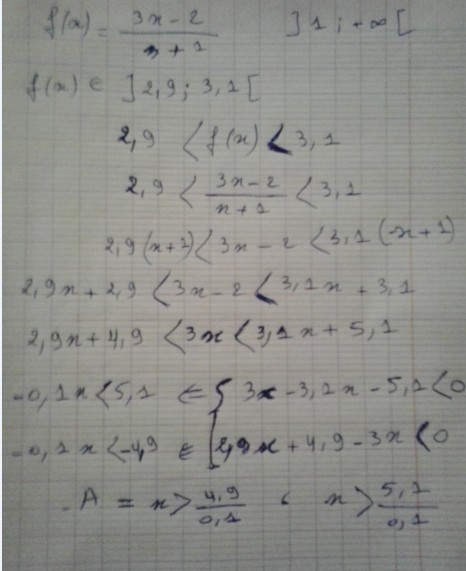 f(x) = (3x - 2)/(x + 1) ]1 ; +∞ [
f(x) ∈ ]2,9 ; 3,1 [
2,9 < f(x) < 3,1
2,9 < (3x - 2)/(x + 1) < 3,1
2,9(x+1) < 3x - 2 < 3,1(x+1)
2,9x + 2,9 < 3x - 2 < 3,1x + 3,1
2,9x + 4,9 < 3x < 3,1x + 5,1
-0,1x < 5,1 ⇐ { 3x - 3,1x - 5,1 < 0
-0,1x < -4,9 ⇐ { 2,9x + 4,9 - 3x < 0
A = x > 4,9/0,1 x > 5,1/0,1